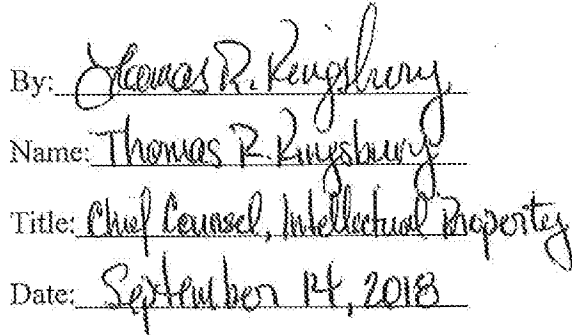 By: Thomas R. Kingsbury
Name: Thomas R. Kingsbury
Title: Chief Counsel, Intellectual Property
Date: September 14, 2018